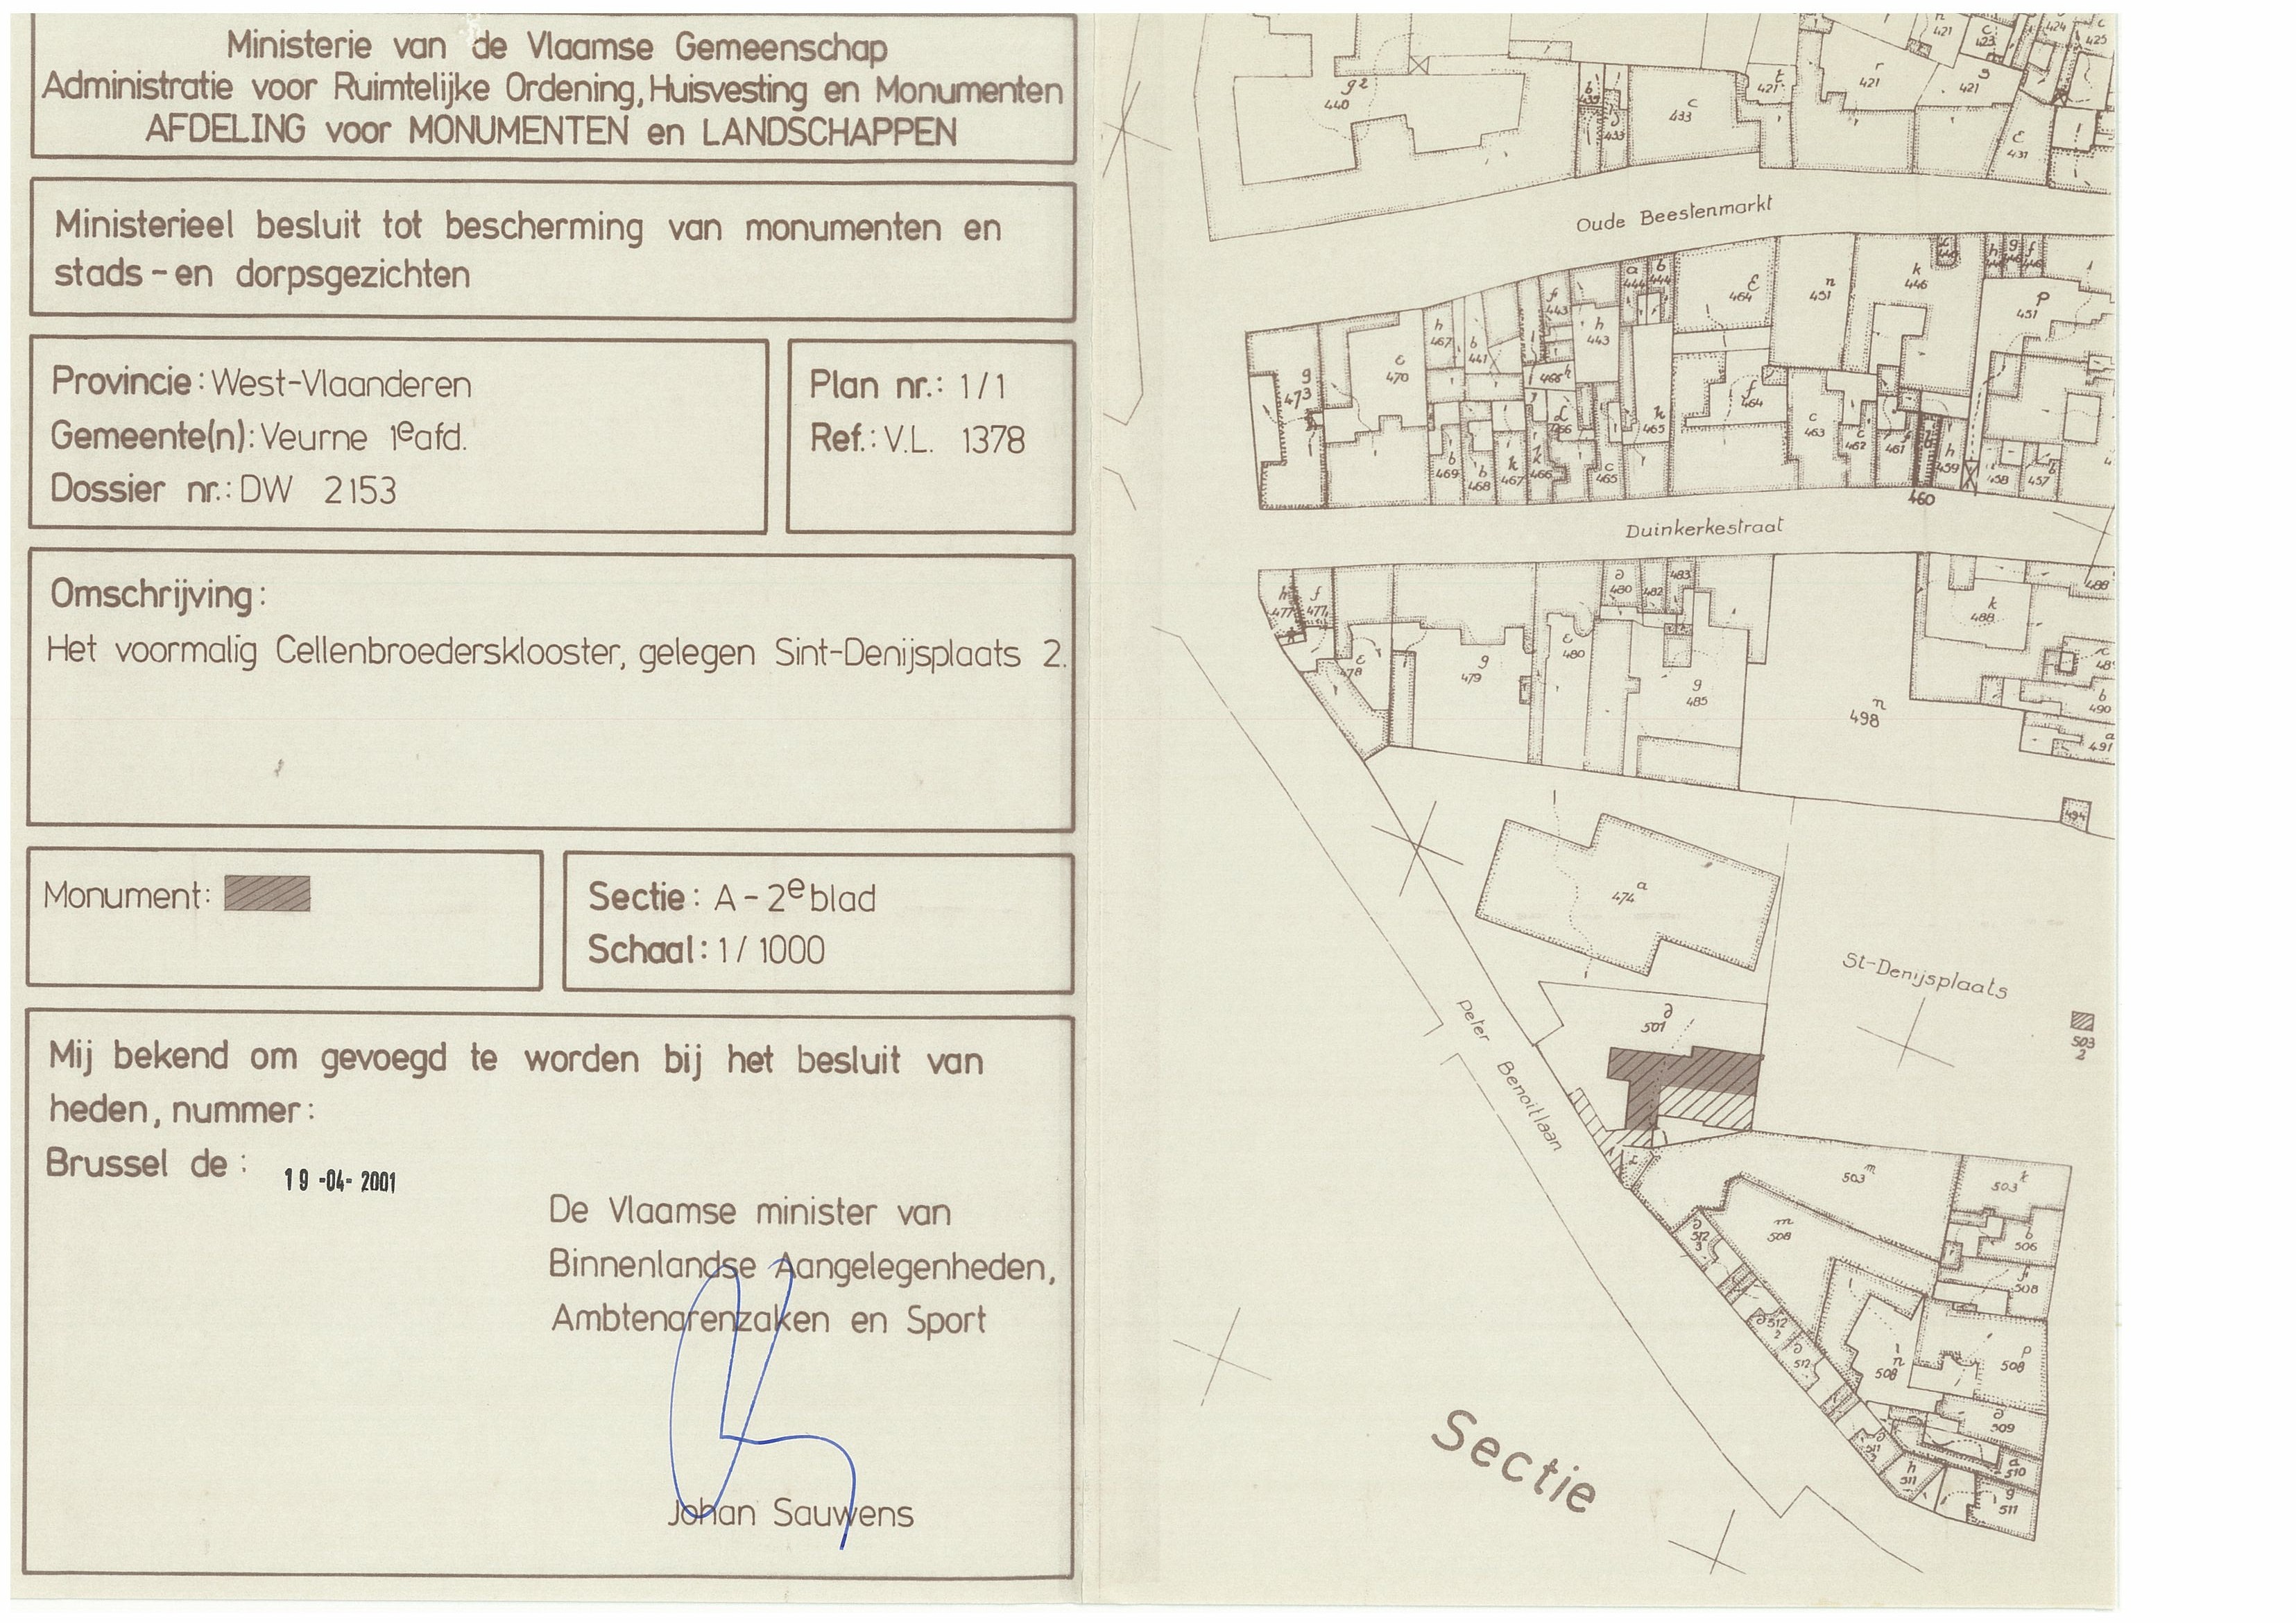 Ministerie van de Vlaamse Gemeenschap
Administratie voor Ruimtelijke Ordening, Huisvesting en Monumenten
AFDELING voor MONUMENTEN en LANDSCHAPPEN
Ministerieel besluit tot bescherming van monumenten en
stads-en dorpsgezichten
Provincie: West-Vlaanderen
Gemeente(n): Veurne 1e afd.
Dossier nr.: DW 2153
Plan nr.: 1/1
Ref.: V.L. 1378
Omschrijving:
Het voormalig Cellenbroedersklooster, gelegen Sint-Denijsplaats 2.
Monument:
Sectie: A-2e blad
Schaal: 1/1000
Mij bekend om gevoegd te worden bij het besluit van
heden, nummer:
Brussel de:
19-04-2001
De Vlaamse minister van
Binnenlandse Aangelegenheden,
Ambtenarenzaken en Sport
Johan Sauwens
g2
440
c
433
t
421
r
421
g
421
n
421
c
423
424
c
425
ε
431
Oude Beestenmarkt
g
473
c
470
h
467
b
441
f
443
h
443
a
444
b
444
ε
464
n
451
k
446
h
g
f
p
451
466h
f
464
k
465
c
463
c
462
461
h
459
458
b
457
b
469
b
468
k
467
k
466
c
465
460
Duinkerkestraat
h
477
f
477
ε
478
g
479
ε
480
a
480
482
483
g
485
n
498
k
488
488
b
490
a
491
494
a
474
St-Denijsplaats
a
501
503
2
Peter Benoitlaan
503m
503k
m
508
b
506
f
508
p
508
n
508
a
509
a
510
g
511
h
511
a
511
3
a
512
3
a512
2
a
512
Sectie